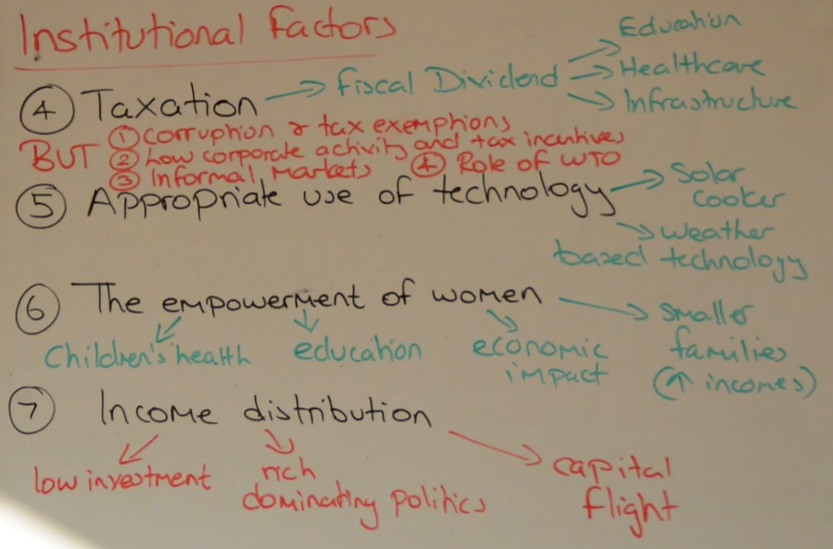 Institutional Factors
④ Taxation → Fiscal Dividend → Education
→ Healthcare
→ Infrastructure
BUT ① corruption & tax exemptions
② Low corporate activity and tax incentives
③ Informal Markets ④ Role of WTO
⑤ Appropriate use of technology → Solar
cooker
→ weather
based technology
⑥ The empowerment of women → smaller
families
(↑ incomes)
Children's health education economic
impact
⑦ Income distribution
low investment rich
dominating politics
capital
flight